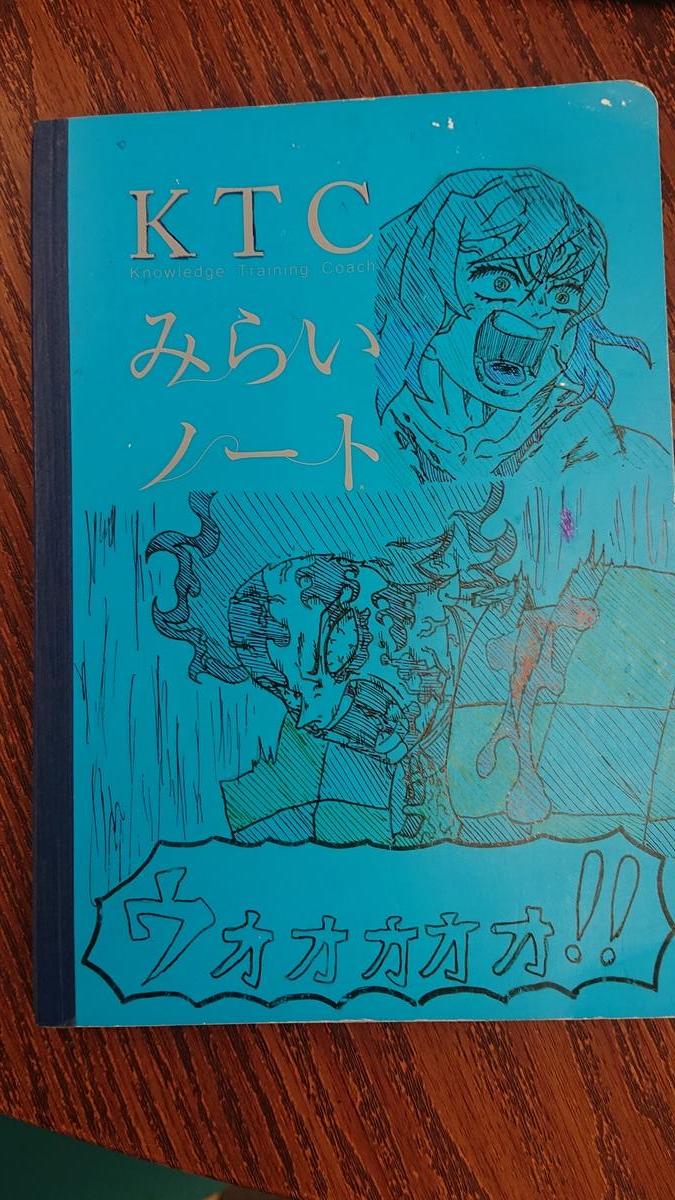 KTC
Knowledge Training Coach
みらい
ノート
ウォォォォォ!!